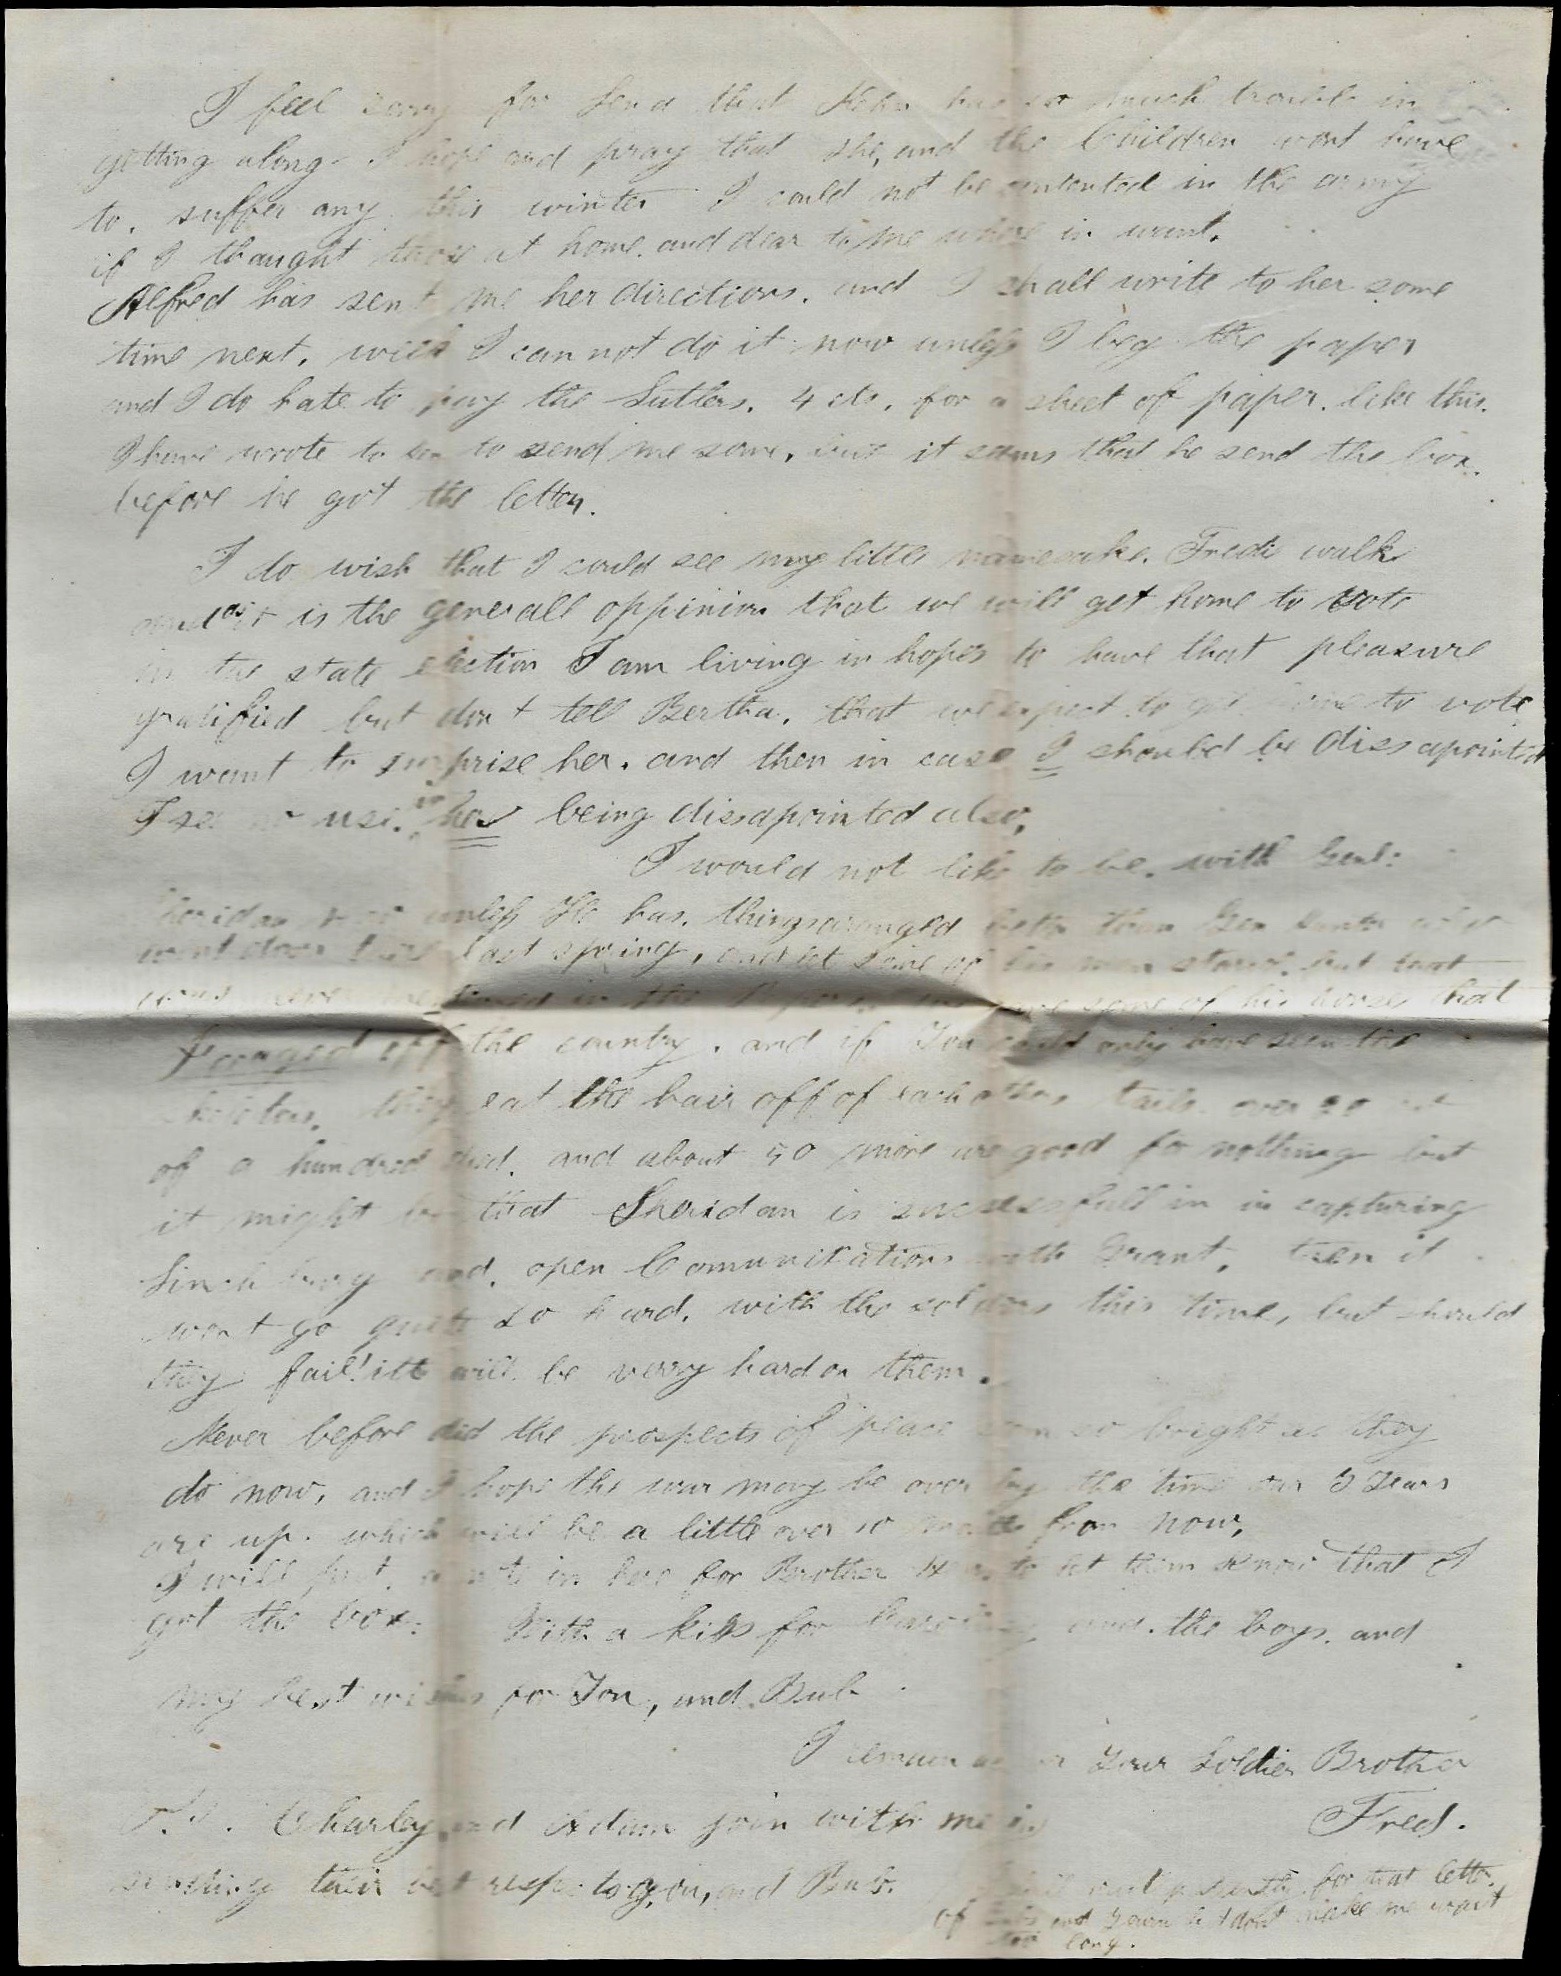 I feel sorry for Lena that has so much trouble in
getting along. I hope and pray that she, and the Children wont have
to. suffer any this winter I could not be contented in the army
if I thaught those at home. and dear to me where in want.
Alfred has sent me her directions. and I shall write to her some
time next. week I can not do it now unless I beg the paper
and I do hate to pay the Sutlers. 4 cts. for a sheet of paper. like this.
I have wrote to to send me some, but it seems that he send the box.
before he got the letter.
I do wish that I could see my little namesake. Fredie walk
and as it is the generall oppinion that we will get home to vote
in the state election I am living in hopes to have that pleasure
gratified but don't tell Bertha. that we expect to get home to vote
I want to surprise her. and then in case I should be dissapointed
I see no use. in her being dissapointed also,
I would not like to be. with Genl:
Sheridan now unless He has. things aranged better than Gen
went down there last spring, and let some of his men starve. but that
was never mentioned in the some of his horses that
foraged off the country. and if You could only have seen the
they eat the hair off of each others tails. over 20
of a hundred died. and about 50 more are good for nothing but
it might be that Sheridan is successfull in in capturing
and. open Comunications with Grant, then it
wont go quite so hard. with the soldiers this time, but should
they fail! itt will be verry hard on them.
Never before did the prospects of peace seem so bright as they
do now, and I hope the war may be over by the time our 3 Years
are up. which will be a little over 10 months from now,
I will put a note in here for Brother to let them know that I
got the box. With a kiss for and. the boys. and
my best wishes for You, and Bub.
I remain as ever Your Soldier Brother
Fred.
P.S. Charley and Adam join with me in
sending their best resp. to you, and Bub.
for that letter
of Bubs and Yours but dont make me wait
too long.